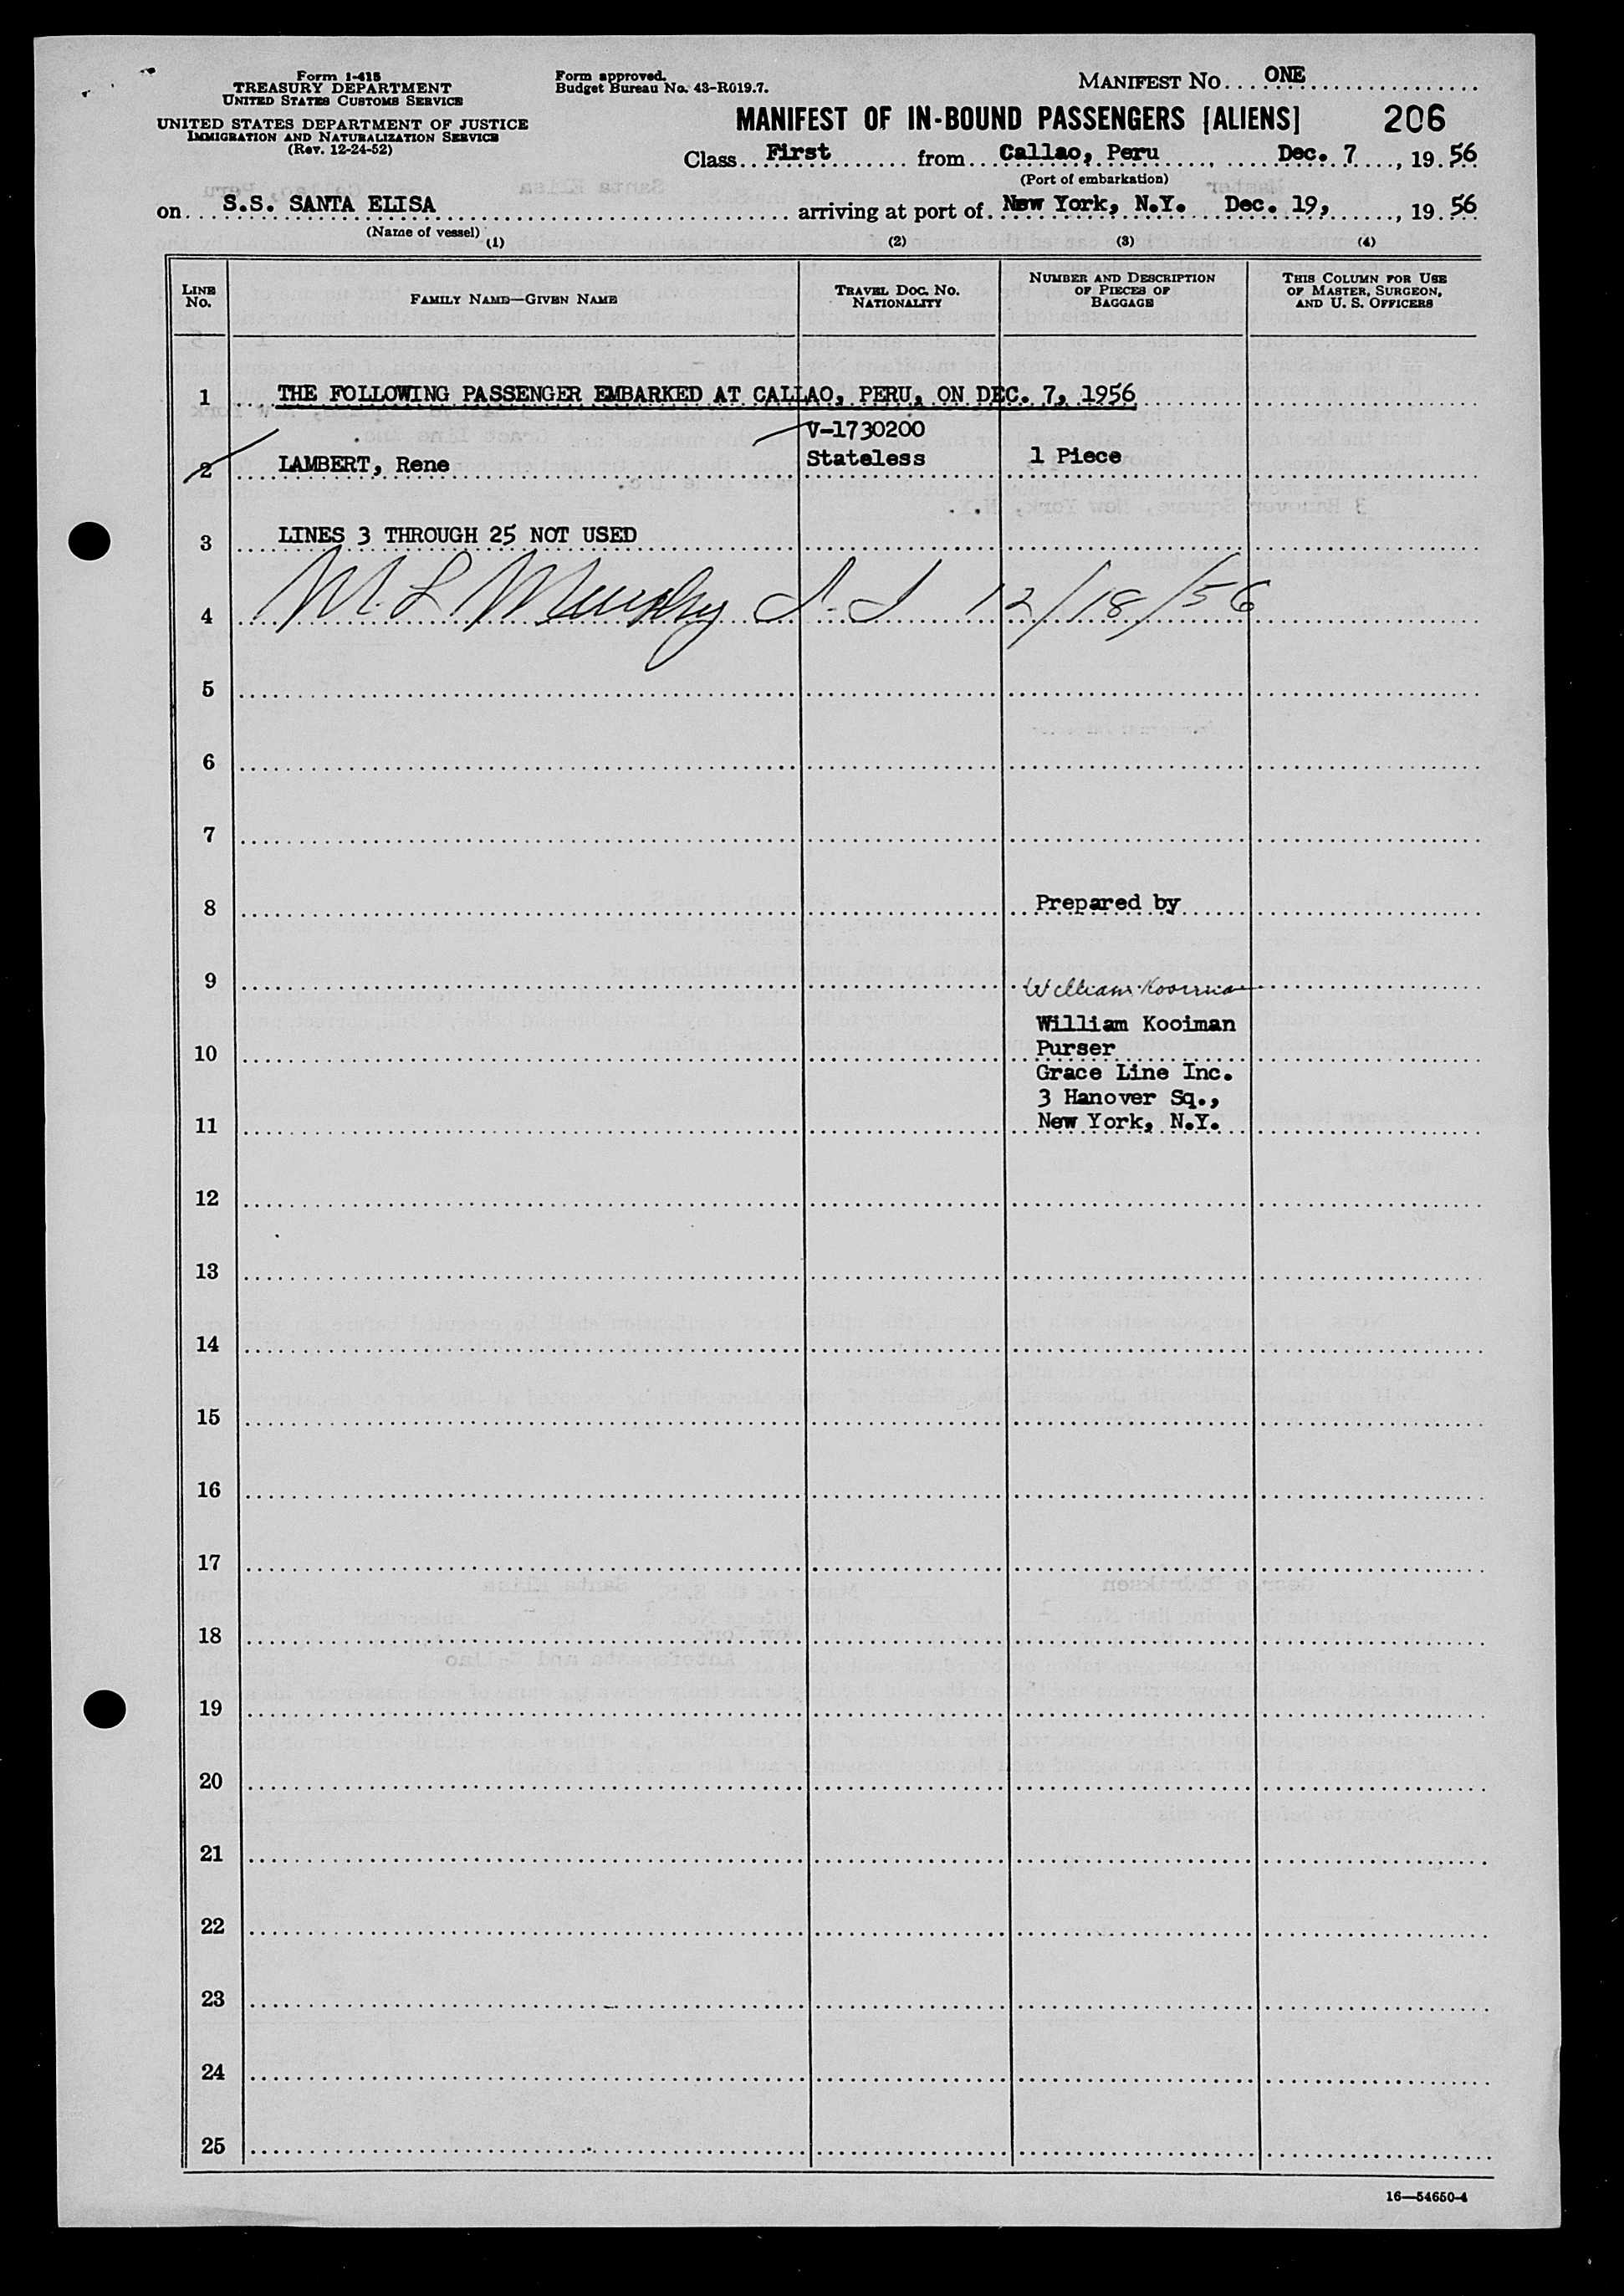 Form I-415
TREASURY DEPARTMENT
UNITED STATES CUSTOMS SERVICE
UNITED STATES DEPARTMENT OF JUSTICE
IMMIGRATION AND NATURALIZATION SERVICE
(Rev. 12-24-52)
Form approved.
Budget Bureau No. 43-R019.7.
MANIFEST NO. ONE
MANIFEST OF IN-BOUND PASSENGERS [ALIENS] 206
Class First from Callao, Peru Dec. 7, 1956
(Port of embarkation)
on S.S. SANTA ELISA arriving at port of New York, N.Y. Dec. 19, 1956
(Name of vessel)
(1) (2) (3) (4)
LINE NO.
FAMILY NAME—GIVEN NAME
TRAVEL DOC. NO.
NATIONALITY
NUMBER AND DESCRIPTION
OF PIECES OF
BAGGAGE
THIS COLUMN FOR USE
OF MASTER, SURGEON,
AND U. S. OFFICERS
1 THE FOLLOWING PASSENGER EMBARKED AT CALLAO, PERU, ON DEC. 7, 1956
V-1730200
2 LAMBERT, Rene Stateless 1 Piece
3 LINES 3 THROUGH 25 NOT USED
4 M. L. Murphy 12/18/56
5
6
7
8 Prepared by
9 William Kooiman
William Kooiman
10 Purser
Grace Line Inc.
3 Hanover Sq.,
11 New York, N.Y.
12
13
14
15
16
17
18
19
20
21
22
23
24
25
16—54650-4